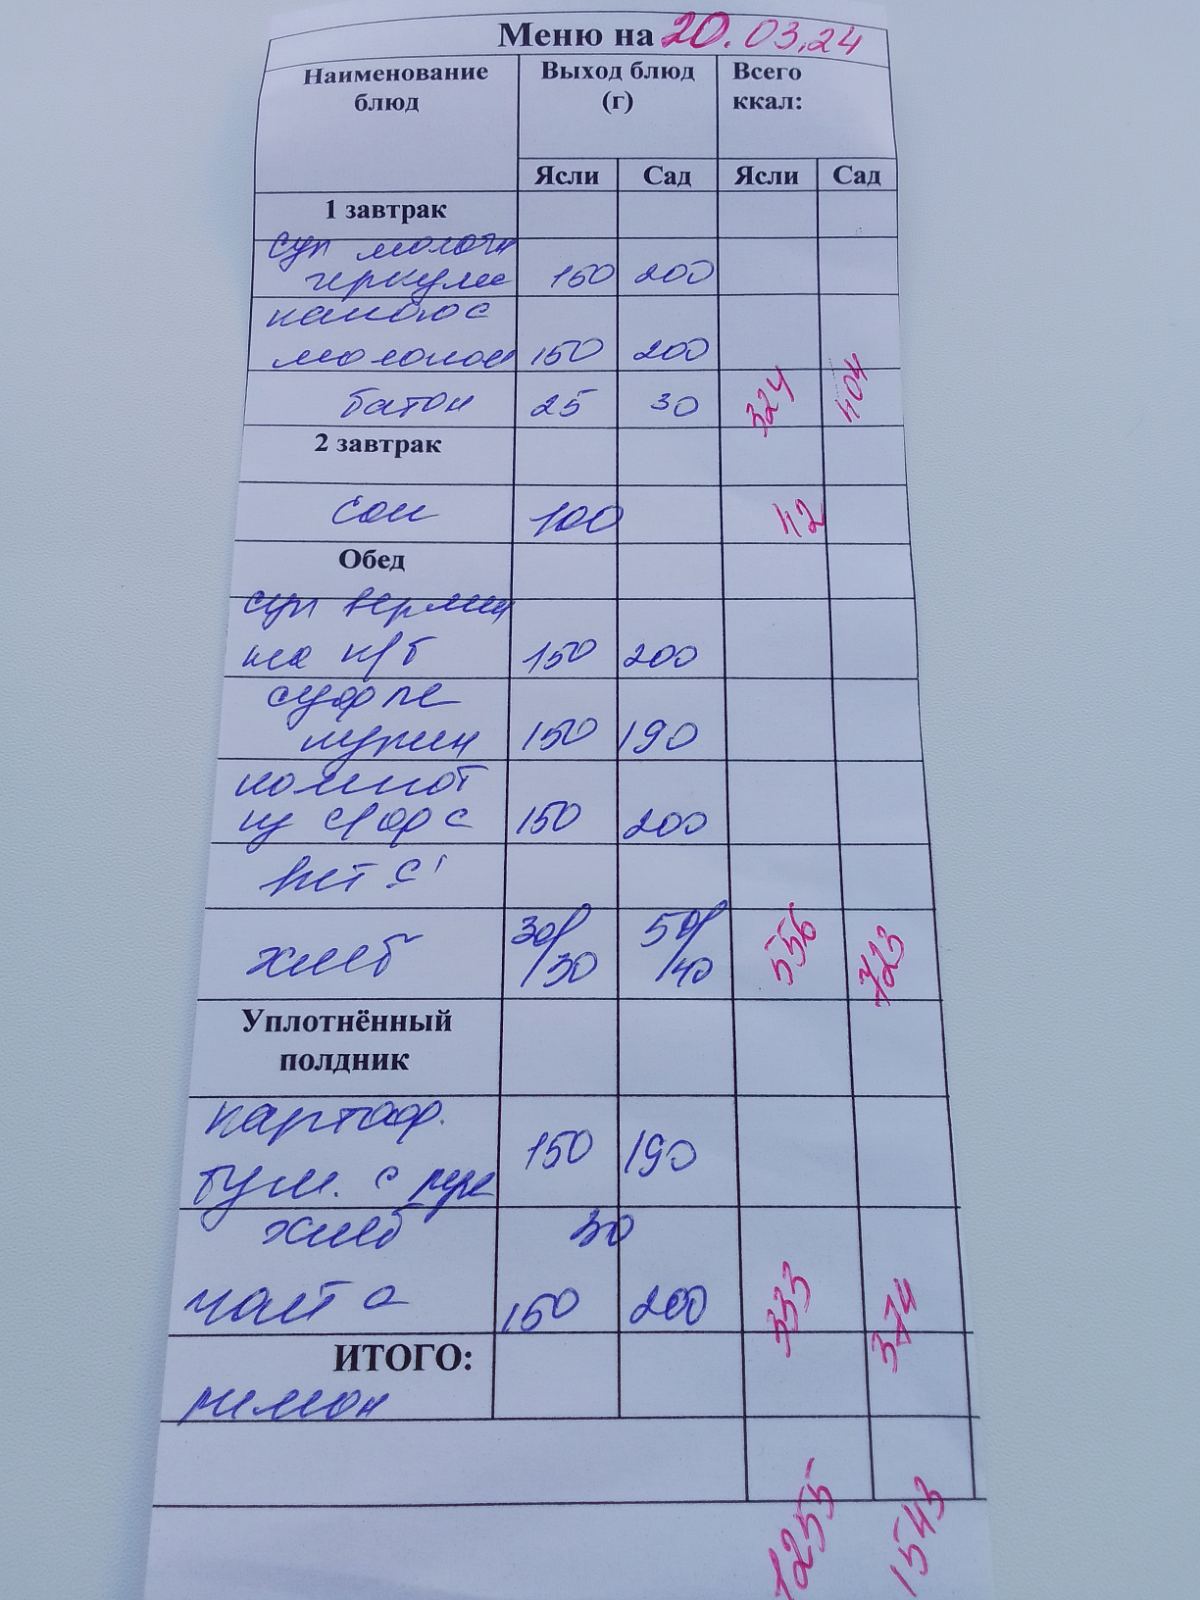 Меню на 20.03.24
Наименование блюд
Выход блюд (г)
Всего ккал:
Ясли Сад Ясли Сад
1 завтрак
суп молочн
геркулес 150 200
какао с
молоком 150 200
батон 25 30 324 404
2 завтрак
сок 100 42
Обед
суп вермиш
на к/б 150 200
суфле
курин 150 190
компот
из с/ф с 150 200
вит С
хлеб 30/30 50/40 556 723
Уплотнённый
полдник
картоф.
150 190
хлеб 30
чай с 150 200 333 374
ИТОГО:
лимон
1255 1543